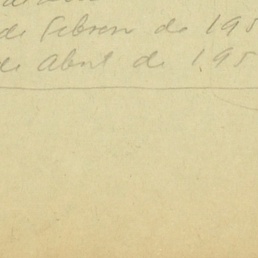 de Febrero de 195
de Abril de 195